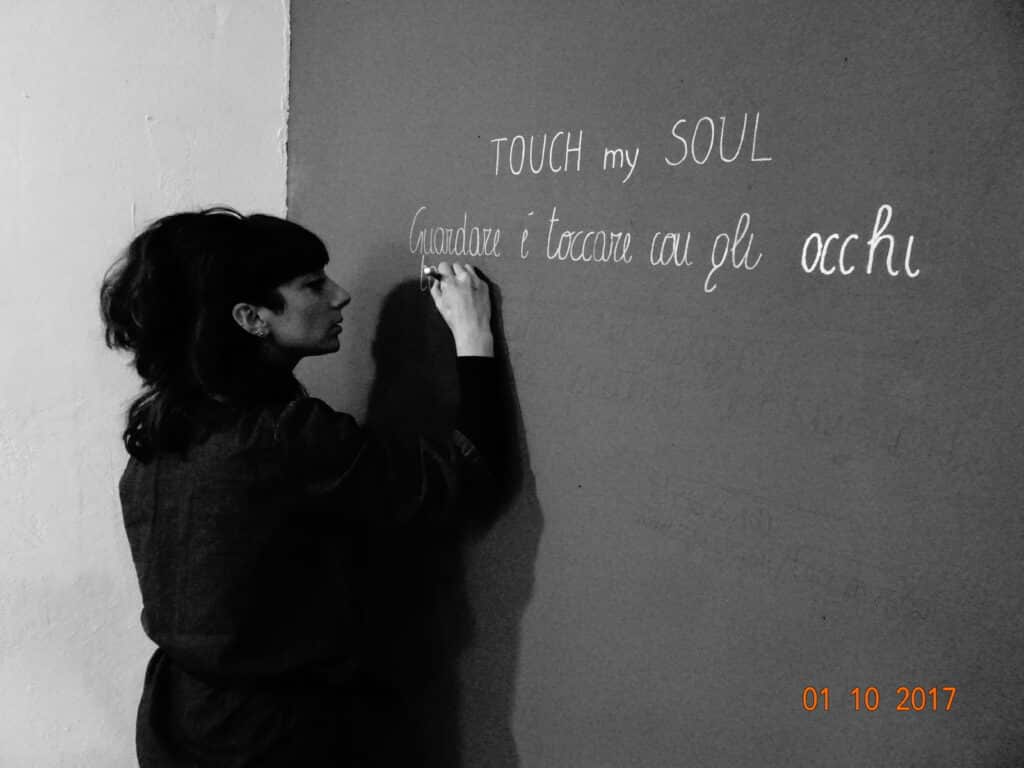 TOUCH my SOUL
Guardare é toccare con gli occhi
01 10 2017